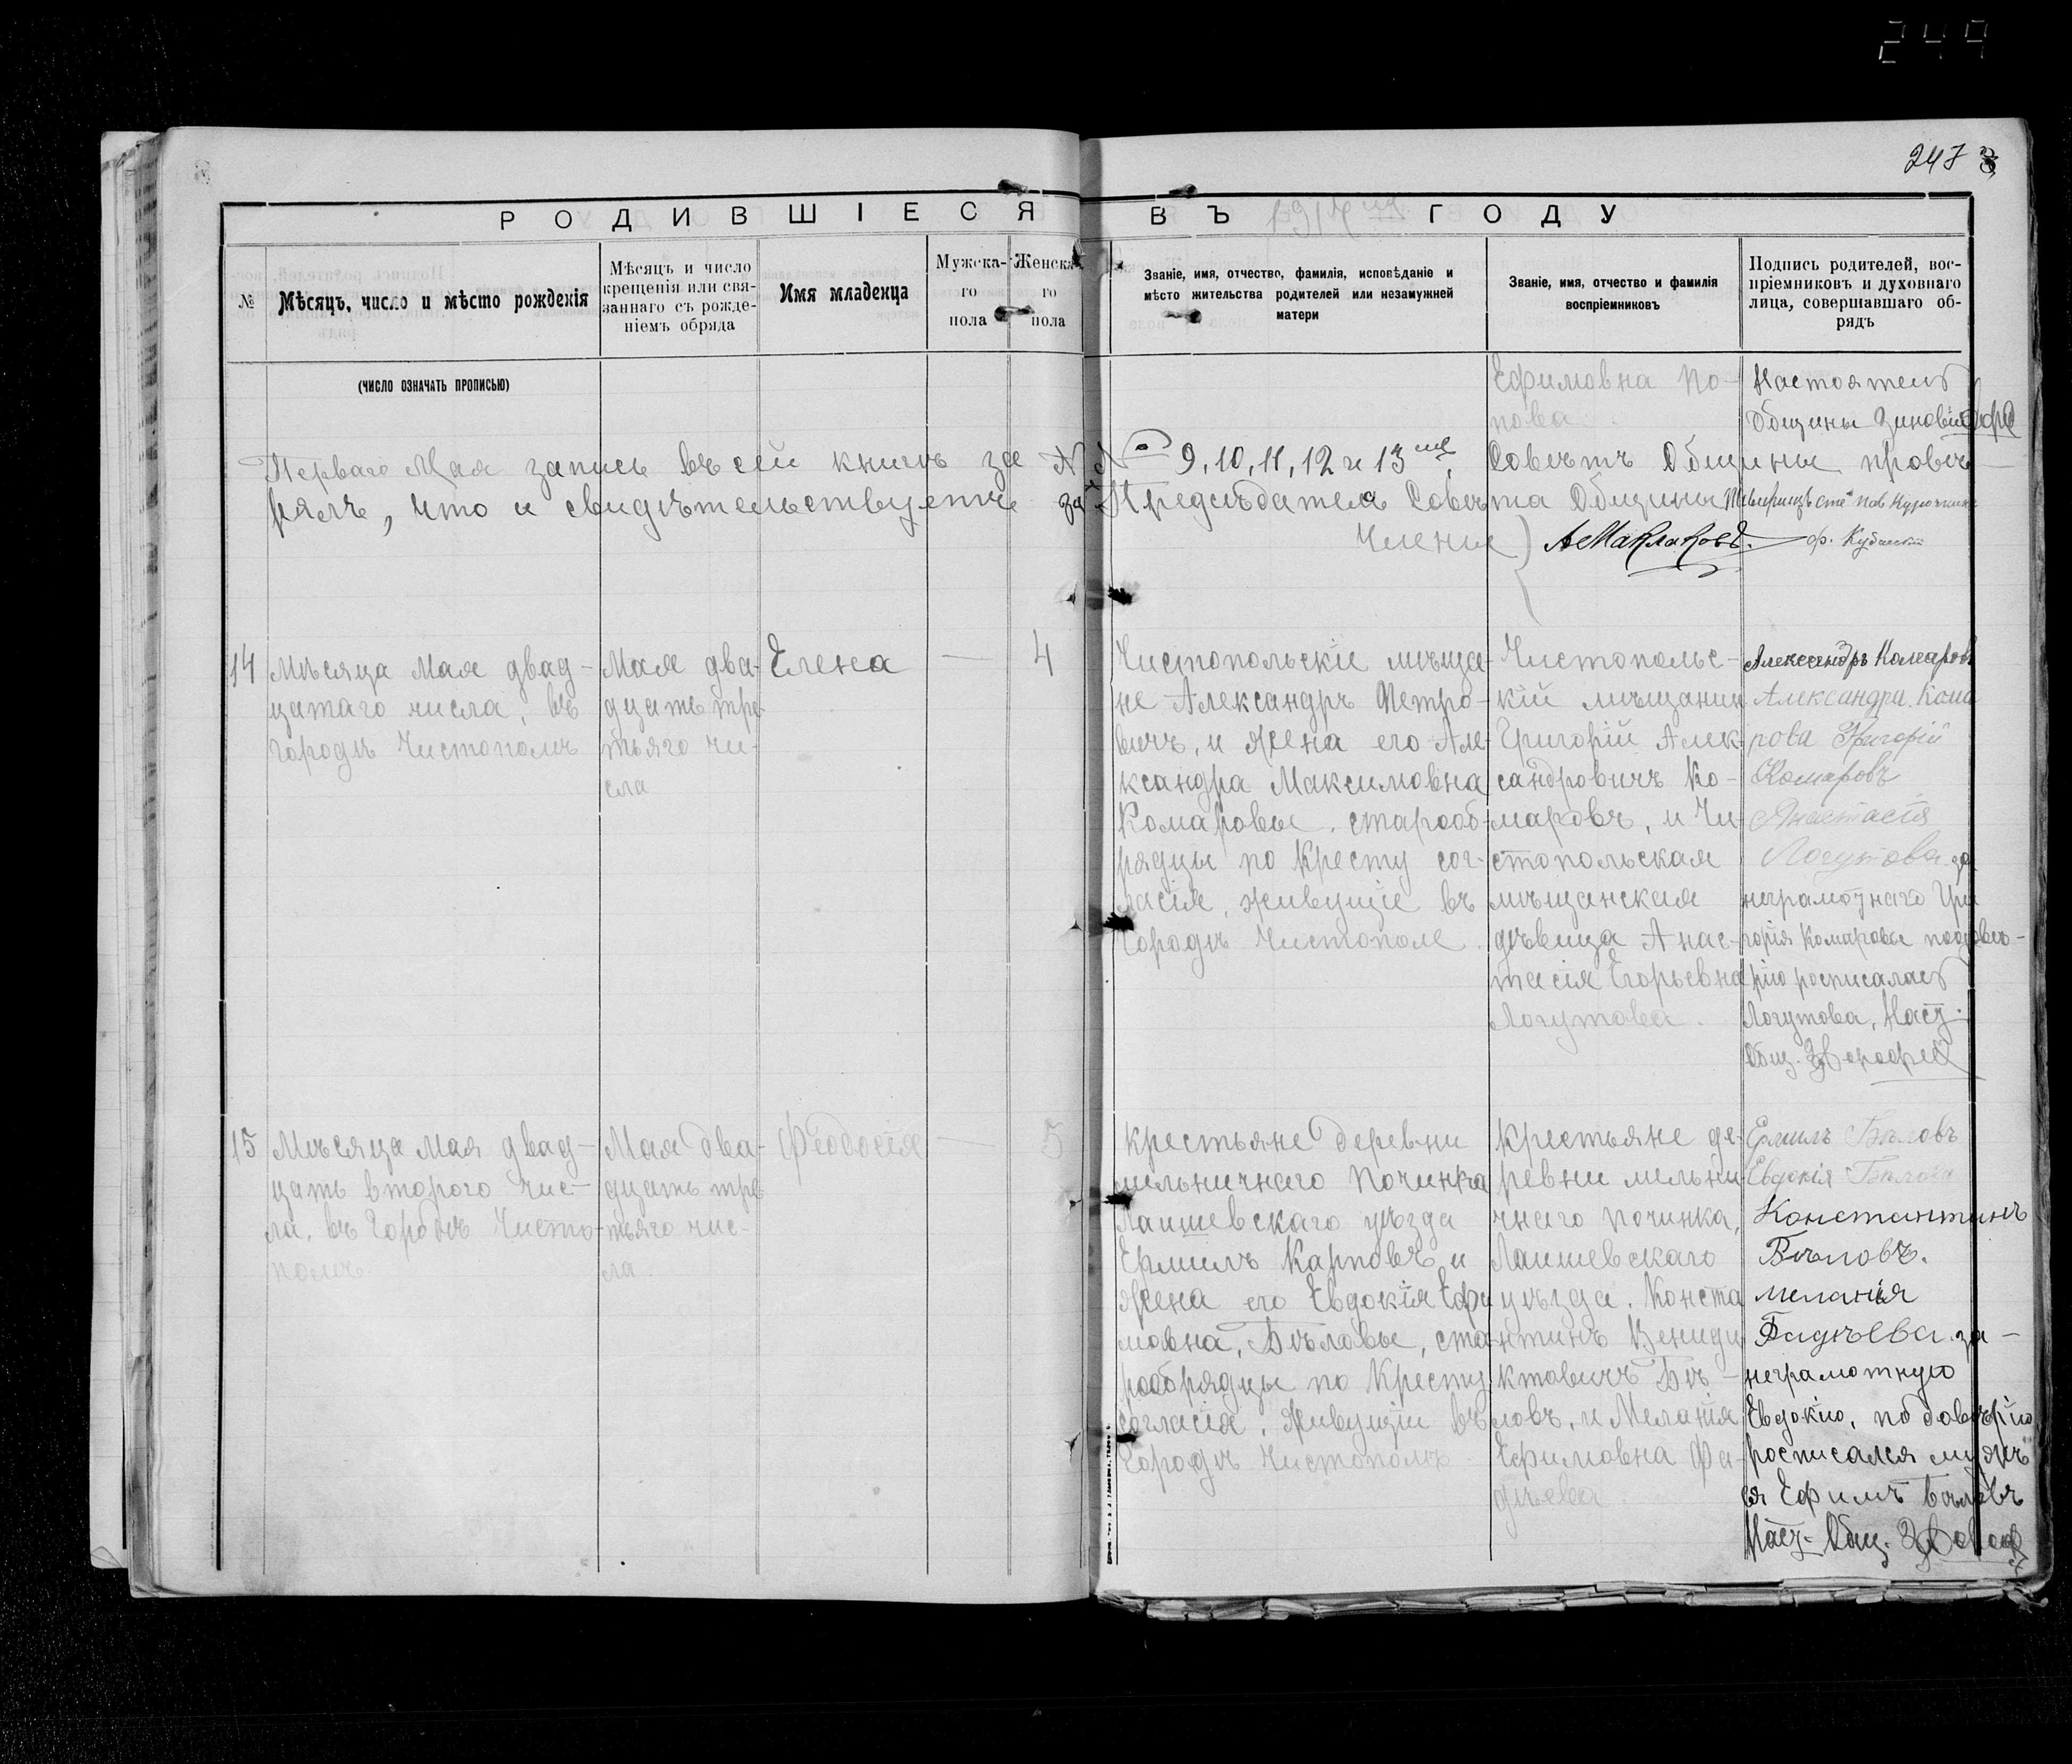 249
247 3
РОДИВШІЕСЯ ВЪ 1914 ГОДУ
№
Мѣсяцъ, число и мѣсто рожденія
Мѣсяцъ и число
крещенія или свя-
заннаго съ рожде-
ніемъ обряда
Имя младенца
Мужска-
го
пола
Женска-
го
пола
Званіе, имя, отчество, фамилія, исповѣданіе и
мѣсто жительства родителей или незамужней
матери
Званіе, имя, отчество и фамилія
воспріемниковъ
Подпись родителей, вос-
пріемниковъ и духовнаго
лица, совершавшаго об-
рядъ
(ЧИСЛО ОЗНАЧАТЬ ПРОПИСЬЮ)
Ефимовна По-
пова.
Настоятель
Общины Зиновій
Перваго Мая запись въ сей книгѣ за №№ 9, 10, 11, 12 и 13, Совѣтъ Общины провѣ-
рялъ, что и свидѣтельствуетъ за Предсѣдателя Совѣта Общины
Члены А Маклаковъ.
14
Мѣсяца Мая двад-
цатаго числа, въ
городѣ Чистополѣ
Мая два-
дцать тре-
тьяго чи-
сла
Елена
—
4
Чистопольскіе мѣща-
не Александръ Петро-
вичъ, и жена его Але-
ксандра Максимовна
Комаровы, старооб-
рядцы по Кресту сог-
ласія, живущіе въ
городѣ Чистополе
Чистопольс-
кій мѣщанин
Григорій Алек-
сандровичъ Ко-
маровъ, и Чи-
стопольская
мѣщанская
дѣвица Анас-
тасія Егорьевна
Логутова.
Александръ Комаровъ
Александра Кома
рова Григорій
Комаровъ
Анастасія
Логутова за
неграмотнаго Гри
горія Комарова по довѣ-
рію росписалась
Логутова, Наст.
Общ.
15
Мѣсяца Мая двад-
цать второго чис-
ла, въ Городѣ Чисто-
полѣ
Мая два-
дцать тре
тьяго чис-
ла
Феодосія
—
5
Крестьяне деревни
мельничнаго Починка
Лаишевскаго уѣзда
Ермилъ Карповъ и
жена его Евдокія Ефи
мовна, Бѣловы, ста
рообрядцы по Кресту
согласія, живущіи въ
Городѣ Чистополѣ
Крестьяне де-
ревни мельни
чнаго починка,
Лаишевскаго
уѣзда. Конста
нтинъ Вениди
ктовичъ Бѣ-
ловъ, и Меланія
Ефимовна Фа-
дѣева
Ермилъ Бѣловъ
Евдокія Бѣлова
Константинъ
Бѣловъ.
меланья
Фадѣева за-
неграмотную
Евдокію, по довѣрію
росписался мужъ
ея Ефимъ Бѣловъ
Наст. Общ.